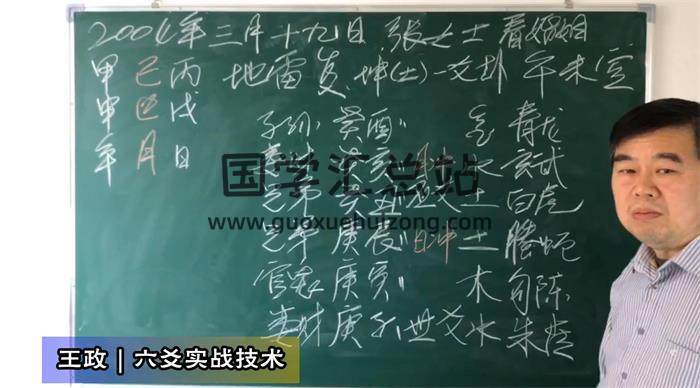 2004年三月十九日 张女士看婚姻
甲 己 丙 地雷复 坤(土)一爻卦 午未(空)
申 巳 戌
年 月 日
子孙 癸酉 金 青龙
妻财 癸亥 月冲 水 玄武
兄弟 癸丑 应爻 土 白虎
兄弟 庚辰 日冲 土 螣蛇
官鬼 庚寅 木 勾陈
妻财 庚子 世爻 水 朱雀
国学汇总站
www.guoxuehuizong.com
王政 | 六爻实战技术